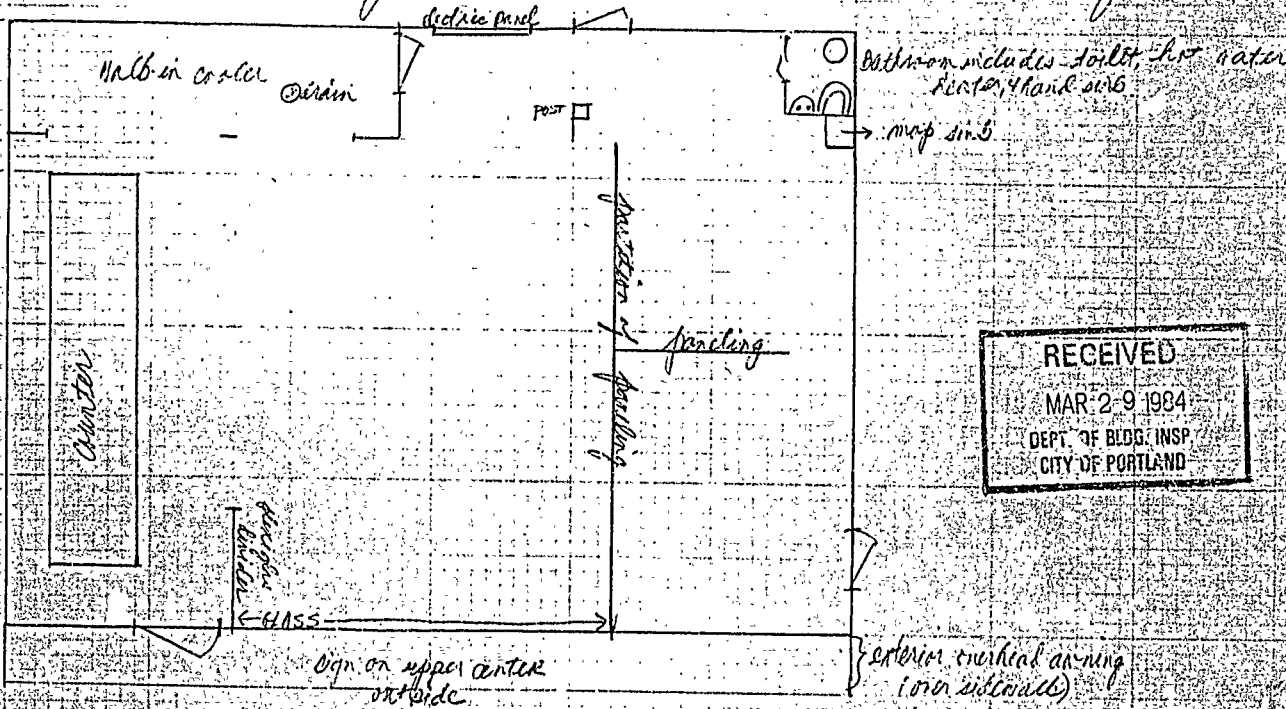 electric panel
Walk-in cooler
drain
POST
Bathroom includes toilet, hot water
heater, & hand sink
mop sink
partition of paneling
paneling
counter
RECEIVED
MAR 29 1984
DEPT. OF BLDG. INSP.
CITY OF PORTLAND
divider
GLASS
sign on upper center
outside
exterior overhead awning
(over sidewalk)